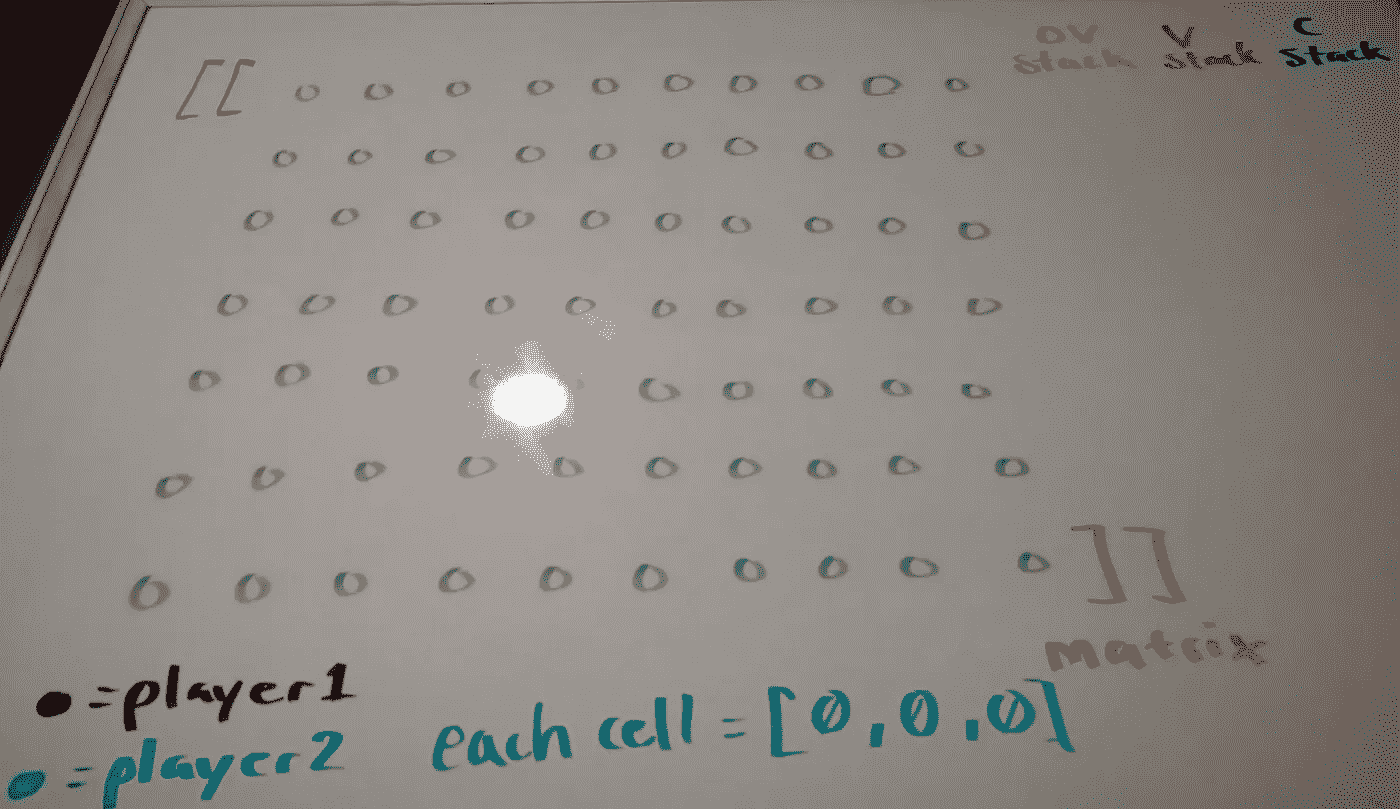 OV V C
Stack Stack Stack
[[ 0 0 0 0 0 0 0 0 0 0
0 0 0 0 0 0 0 0 0 0
0 0 0 0 0 0 0 0 0 0
0 0 0 0 0 0 0 0 0 0
0 0 0 0 0 0 0 0
0 0 0 0 0 0 0 0 0 0
0 0 0 0 0 0 0 0 0 0 ]]
Matrix
= player1
= player2
each cell = [0,0,0]